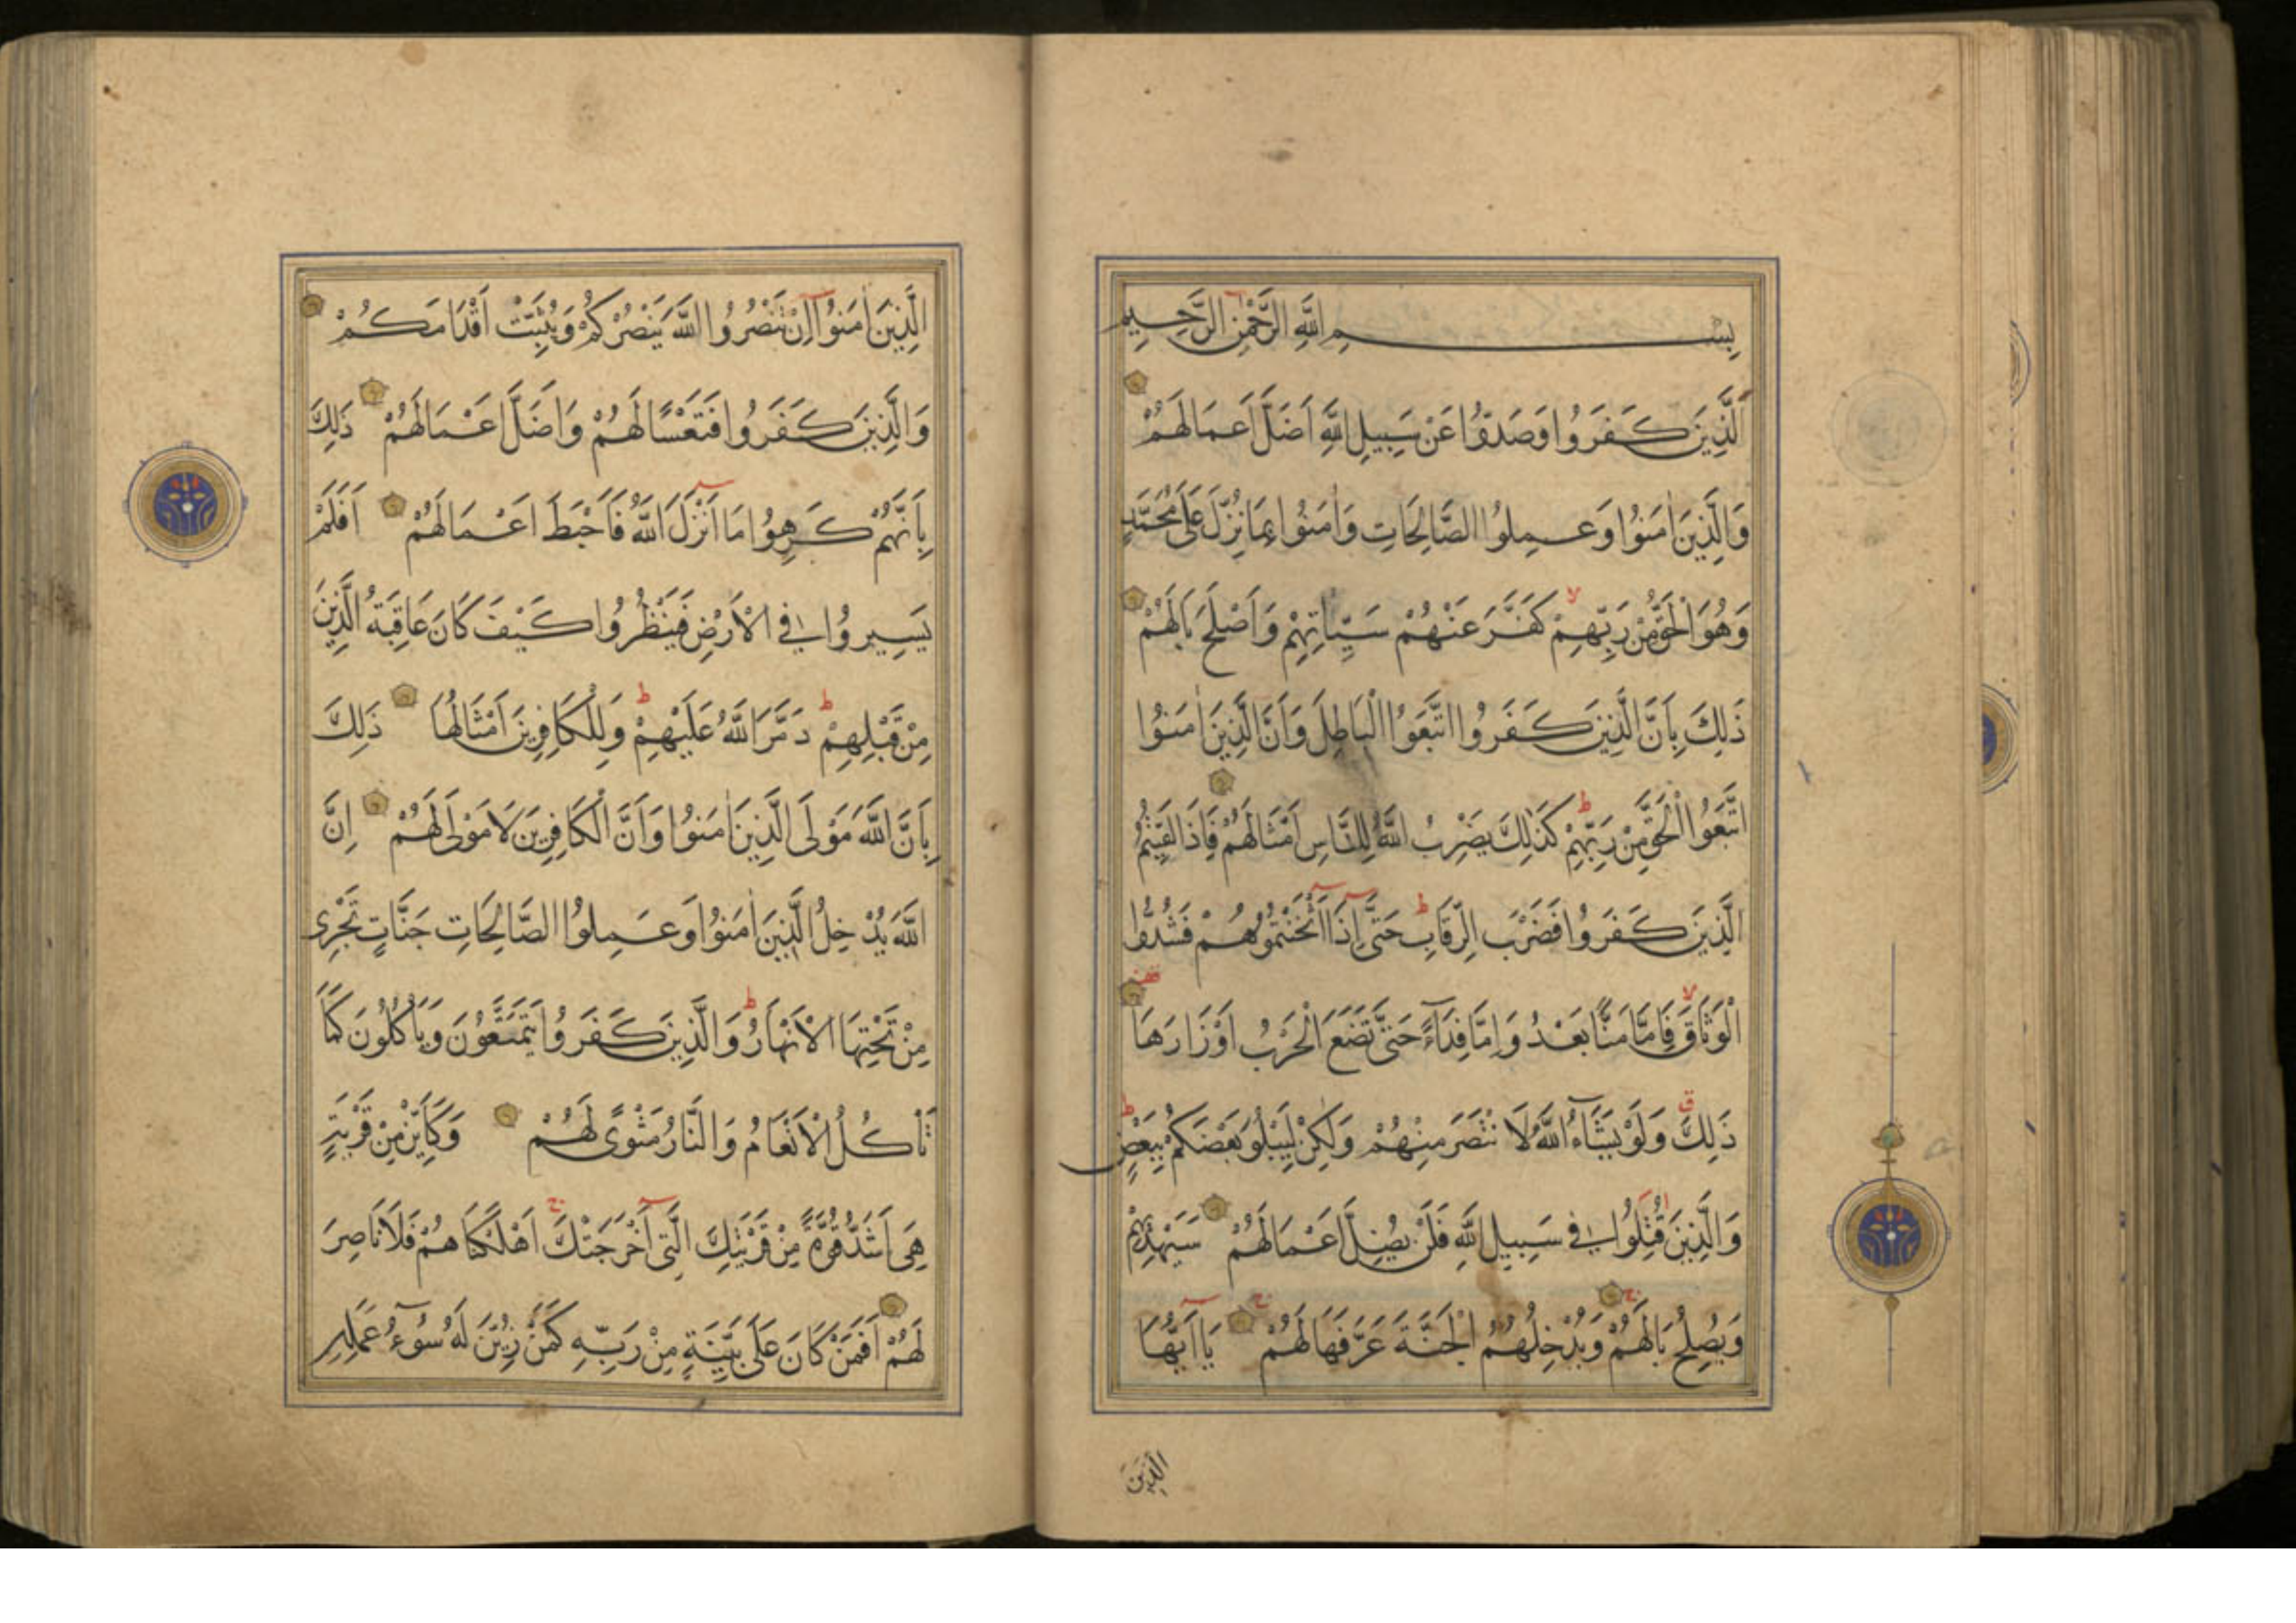 بِسْمِ اللَّهِ الرَّحْمٰنِ الرَّحِيمِ
اَلَّذِينَ كَفَرُوا وَصَدُّوا عَنْ سَبِيلِ اللَّهِ اَضَلَّ اَعْمَالَهُمْ
وَالَّذِينَ اٰمَنُوا وَعَمِلُوا الصَّالِحَاتِ وَاٰمَنُوا بِمَا نُزِّلَ عَلٰى مُحَمَّدٍ
وَهُوَ الْحَقُّ مِنْ رَبِّهِمْ لا كَفَّرَ عَنْهُمْ سَيِّاٰتِهِمْ وَاَصْلَحَ بَالَهُمْ
ذٰلِكَ بِاَنَّ الَّذِينَ كَفَرُوا اتَّبَعُوا الْبَاطِلَ وَاَنَّ الَّذِينَ اٰمَنُوا
اتَّبَعُوا الْحَقَّ مِنْ رَبِّهِمْ ط كَذٰلِكَ يَضْرِبُ اللَّهُ لِلنَّاسِ اَمْثَالَهُمْ فَاِذَا لَقِيتُمُ
الَّذِينَ كَفَرُوا فَضَرْبَ الرِّقَابِ ط حَتّٰى اِذَا اَثْخَنْتُمُوهُمْ فَشُدُّوا
الْوَثَاقَ لا فَاِمَّا مَنًّا بَعْدُ وَاِمَّا فِدَاءً حَتّٰى تَضَعَ الْحَرْبُ اَوْزَارَهَا
ذٰلِكَ ق وَلَوْ يَشَاءُ اللَّهُ لَا نْتَصَرَ مِنْهُمْ وَلٰكِنْ لِيَبْلُوَ بَعْضَكُمْ بِبَعْضٍ ط
وَالَّذِينَ قُتِلُوا فِى سَبِيلِ اللَّهِ فَلَنْ يُضِلَّ اَعْمَالَهُمْ سَيَهْدِيهِمْ
وَيُصْلِحُ بَالَهُمْ ج وَيُدْخِلُهُمُ الْجَنَّةَ عَرَّفَهَا لَهُمْ ج يَا اَيُّهَا
الَّذِينَ
الَّذِينَ اٰمَنُوا اِنْ تَنْصُرُوا اللَّهَ يَنْصُرْكُمْ وَيُثَبِّتْ اَقْدَامَكُمْ
وَالَّذِينَ كَفَرُوا فَتَعْسًا لَهُمْ وَاَضَلَّ اَعْمَالَهُمْ ذٰلِكَ
بِاَنَّهُمْ كَرِهُوا مَا اَنْزَلَ اللَّهُ فَاَحْبَطَ اَعْمَالَهُمْ اَفَلَمْ
يَسِيرُوا فِى الْاَرْضِ فَيَنْظُرُوا كَيْفَ كَانَ عَاقِبَةُ الَّذِينَ
مِنْ قَبْلِهِمْ ط دَمَّرَ اللَّهُ عَلَيْهِمْ ط وَلِلْكَافِرِينَ اَمْثَالُهَا ذٰلِكَ
بِاَنَّ اللَّهَ مَوْلَى الَّذِينَ اٰمَنُوا وَاَنَّ الْكَافِرِينَ لَا مَوْلٰى لَهُمْ اِنَّ
اللَّهَ يُدْخِلُ الَّذِينَ اٰمَنُوا وَعَمِلُوا الصَّالِحَاتِ جَنَّاتٍ تَجْرِى
مِنْ تَحْتِهَا الْاَنْهَارُ ط وَالَّذِينَ كَفَرُوا يَتَمَتَّعُونَ وَيَاْكُلُونَ كَمَا
تَاْكُلُ الْاَنْعَامُ وَالنَّارُ مَثْوًى لَهُمْ وَكَاَيِّنْ مِنْ قَرْيَةٍ
هِىَ اَشَدُّ قُوَّةً مِنْ قَرْيَتِكَ الَّتِى اَخْرَجَتْكَ ج اَهْلَكْنَاهُمْ فَلَا نَاصِرَ
لَهُمْ اَفَمَنْ كَانَ عَلٰى بَيِّنَةٍ مِنْ رَبِّهِ كَمَنْ زُيِّنَ لَهُ سُوءُ عَمَلِهِ